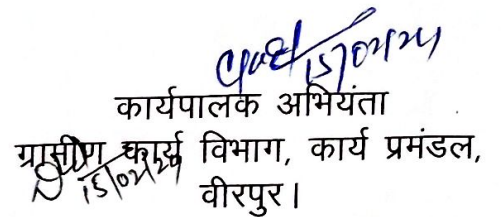 15/02/24
कार्यपालक अभियंता
ग्रामीण कार्य विभाग, कार्य प्रमंडल,
15/02/24
वीरपुर।